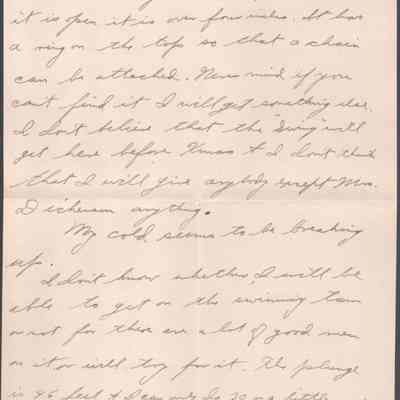 it is open it is over four inches. It has
a ring on the top so that a chain
can be attached. Never mind if you
can't find it I will get something else.
I don't believe that the "Swing" will
get here before Xmas & I don't think
that I will give anybody except Mrs.
Dickerson anything.
My cold seems to be breaking
up.
I don't know whether I will be
able to get on the swimming team
or not for there are a lot of good men
on it or will try for it. The plunge
is 95 feet & I can only do 70 or a little